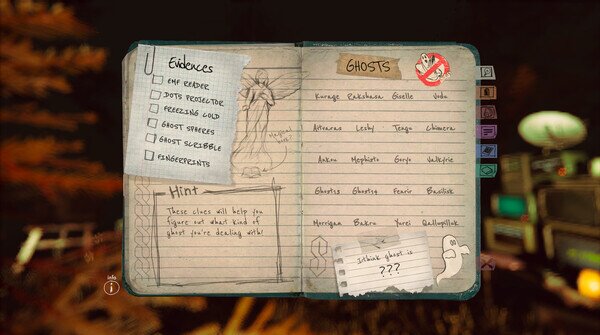 Evidences
EMF READER
DOTS PROJECTOR
FREEZING COLD
GHOST SPHERES
GHOST SCRIBBLE
FINGERPRINTS
Magical
Hint
These clues will help you
figure out what kind of
ghost you're dealing with!
GHOSTS
Kurage Rakshasa Giselle Vodu
Leshy Tengu Chimera
Ankou Mephisto Goryo Valkyrie
Ghost13 Ghost14 Fenrir Basilisk
Morrigan Bakru Yurei Qallupilluk
I think ghost is
???
Info
i